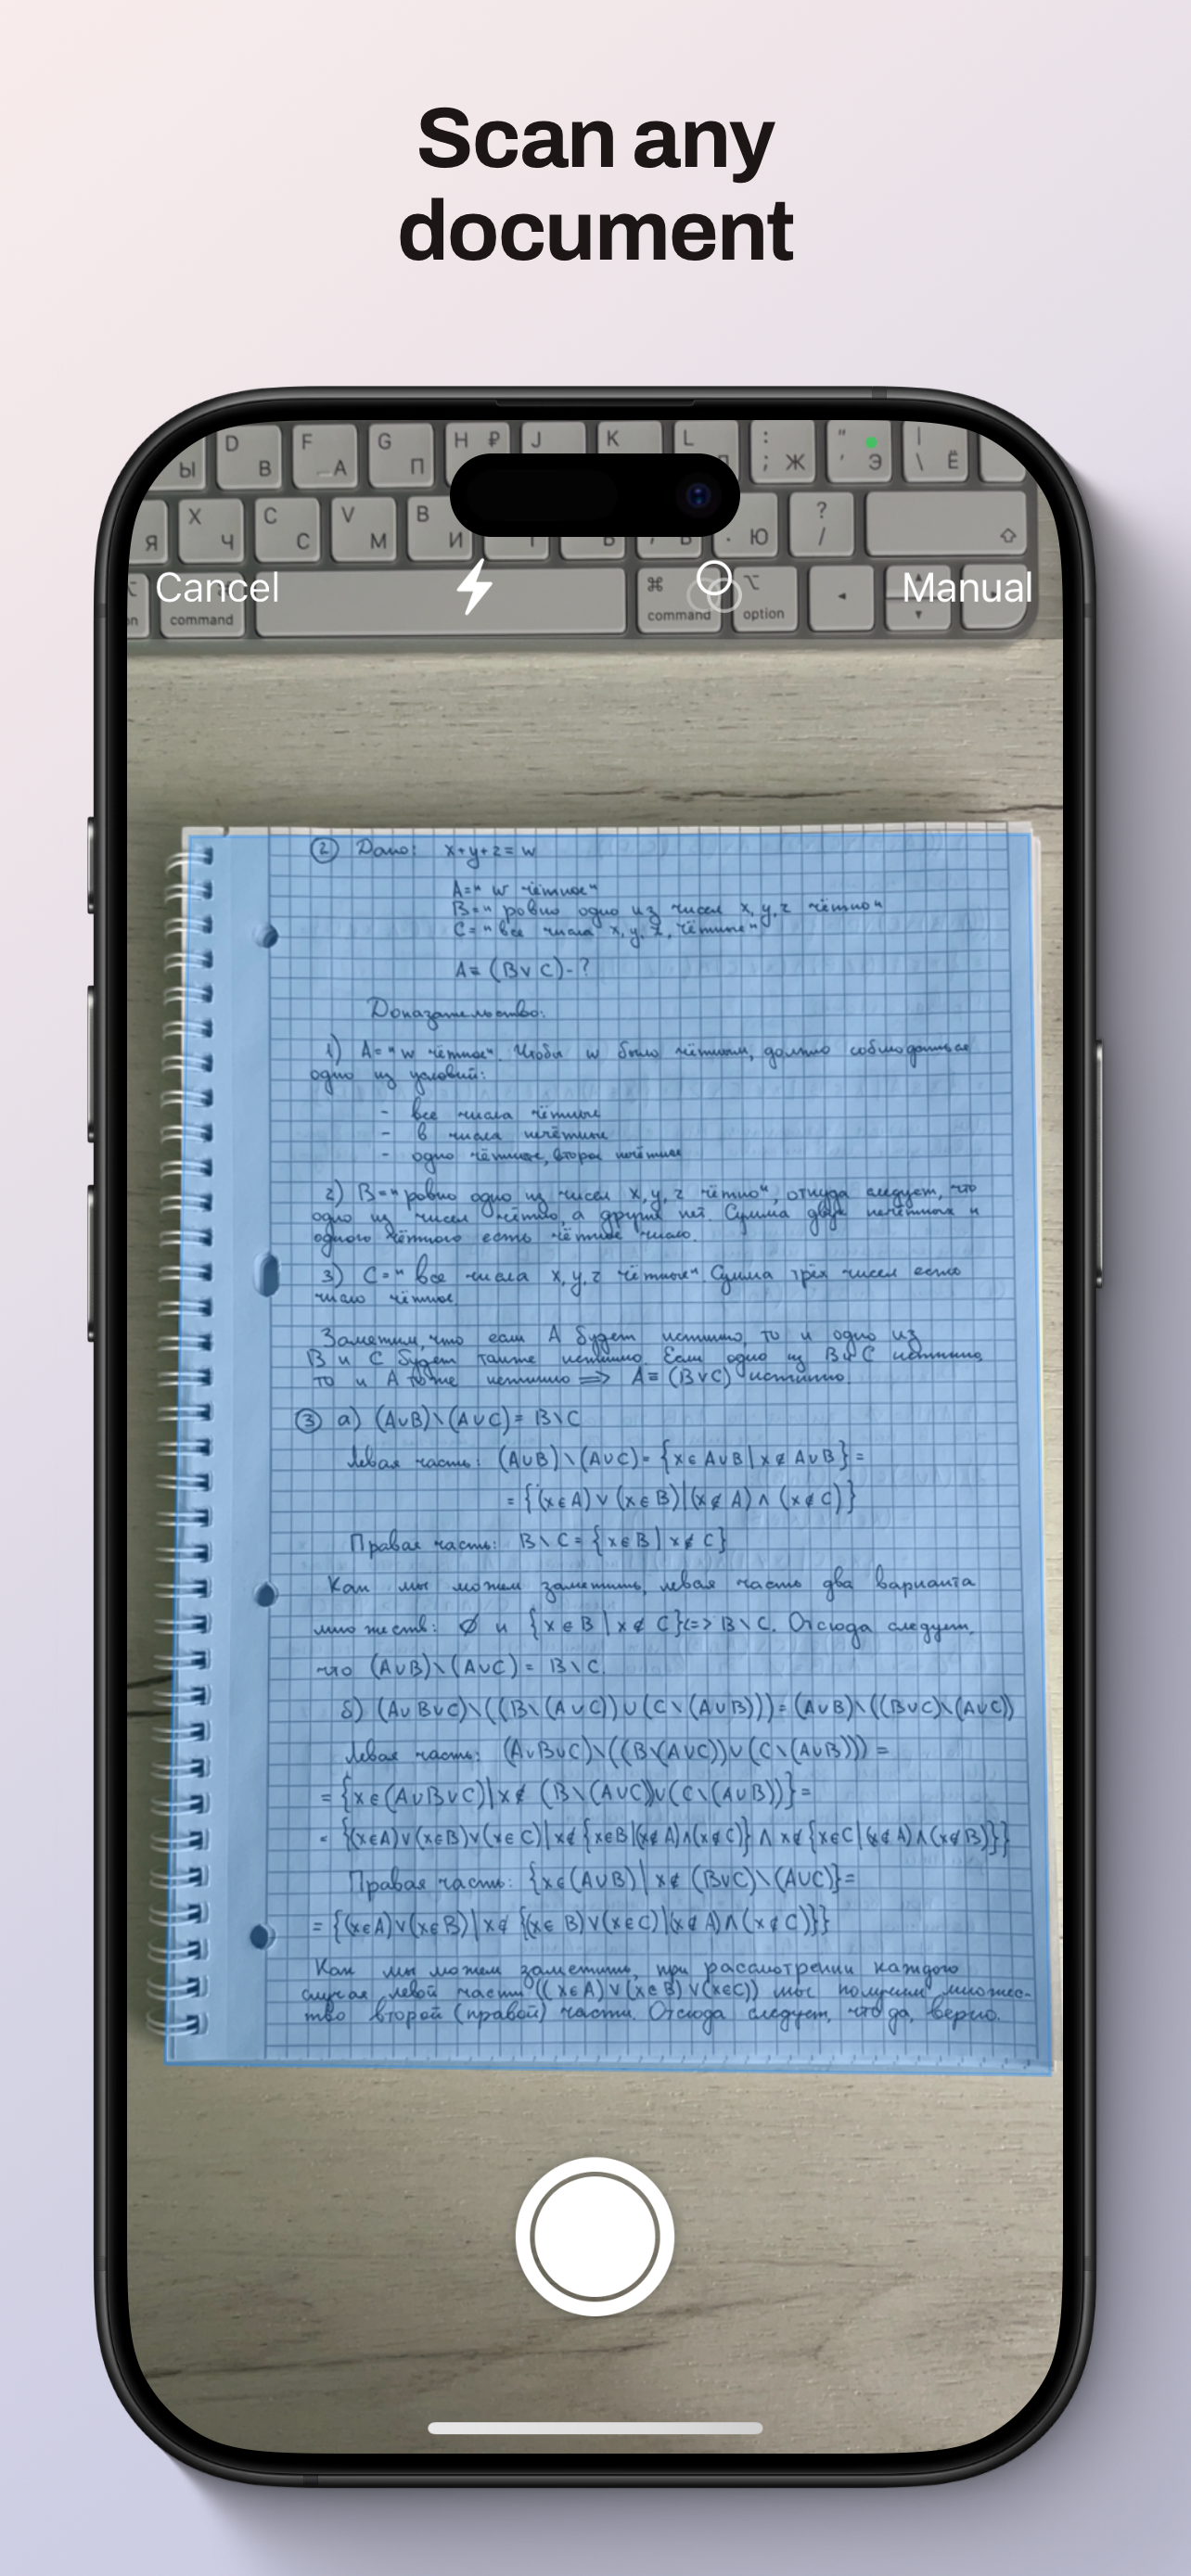 Scan any
document
D Ы F А G П H ₽ J K L : ; Ж " ' Э | \ Ё
В
Я X Ч C С V М B И . Ю ? /
Cancel
Manual
command
command
option
② Дано: x+y+z=w
A=„w чётное“
B=„ровно одно из чисел x,y,z чётно“
C=„все числа x,y,z, чётные“
A≡(B∨C)-?
Доказательство:
1) A=„w чётное“. Чтобы w было чётным, должно соблюдаться
одно из условий:
- все числа чётные
- в числа нечётные
- одно чётное, второе нечётное
2) B=„ровно одно из чисел x,y,z чётно“, откуда следует, что
одно из чисел чётно, а другие нет. Сумма двух нечётных и
одного чётного есть чётное число.
3) C=„все числа x,y,z чётные“. Сумма трёх чисел есть
число чётное.
Заметим, что если A будет истинно, то и одно из
B и C будет также истинно. Если одно из B и C истинно,
то и A тоже истинно ⟹ A≡(B∨C) истинно.
③ а) (A∪B)\(A∪C)=B\C
Левая часть: (A∪B)\(A∪C)={x∈A∪B|x∉A∪B}=
={(x∈A)∨(x∈B)|(x∉A)∧(x∉C)}
Правая часть: B\C={x∈B|x∉C}
Как мы можем заметить, левая часть два варианта
множеств: ∅ и {x∈B|x∉C}<=>B\C. Отсюда следует,
что (A∪B)\(A∪C)=B\C.
б) (A∪B∪C)\((B\(A∪C))∪(C\(A∪B)))=(A∪B)\((B∪C)\(A∪C))
Левая часть: (A∪B∪C)\((B\(A∪C))∪(C\(A∪B)))=
={x∈(A∪B∪C)|x∉(B\(A∪C))∪(C\(A∪B))}=
={(x∈A)∨(x∈B)∨(x∈C)|x∉{x∈B|(x∉A)∧(x∉C)}∧x∉{x∈C|(x∉A)∧(x∉B)}}
Правая часть: {x∈(A∪B)|x∉(B∪C)\(A∪C)}=
={(x∈A)∨(x∈B)|x∉{(x∈B)∨(x∈C)|(x∉A)∧(x∉C)}}
Как мы можем заметить, при рассмотрении каждого
случая левой части ((x∈A)∨(x∈B)∨(x∈C)) мы получим множес-
тво второй (правой) части. Отсюда следует, что да, верно.